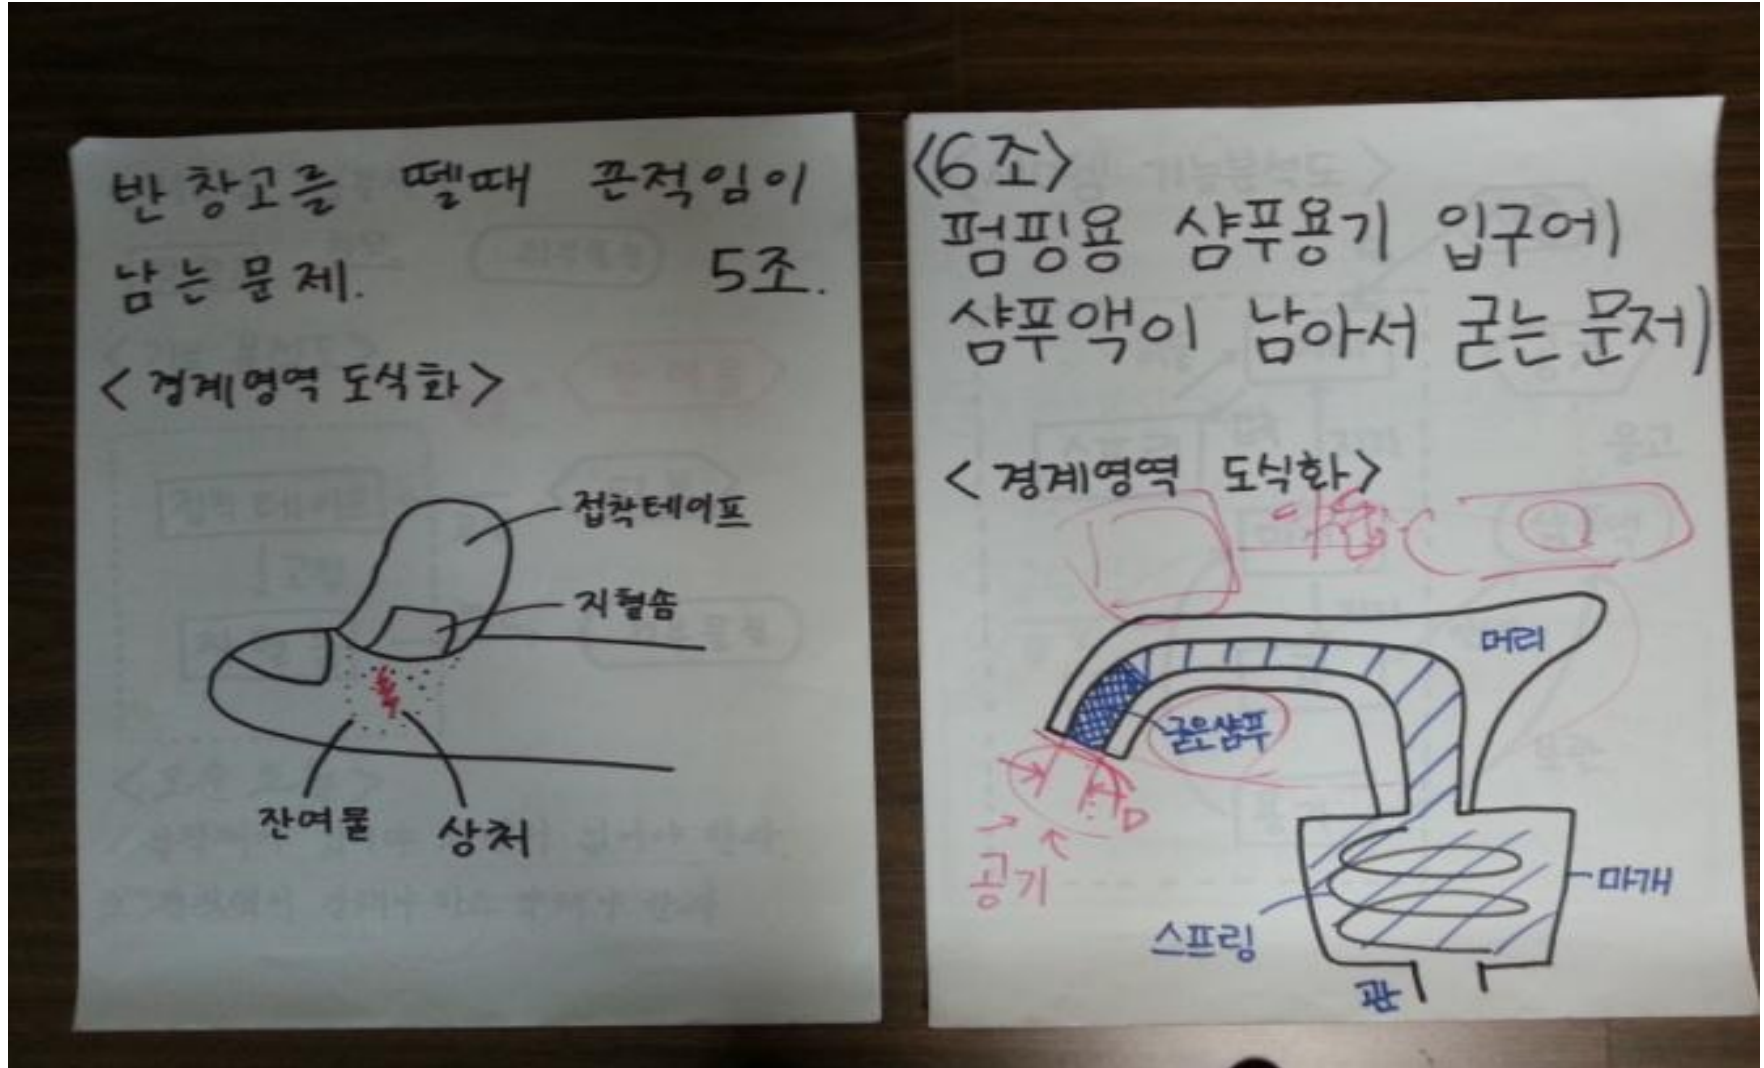 반창고를 뗄때 끈적임이
남는 문제.
5조.
<경계영역 도식화>
접착테이프
지혈솜
잔여물
상처
<6조>
펌핑용 샴푸용기 입구에
샴푸액이 남아서 굳는 문제
<경계영역 도식화>
머리
굳은샴푸
D
공기
마개
스프링
관